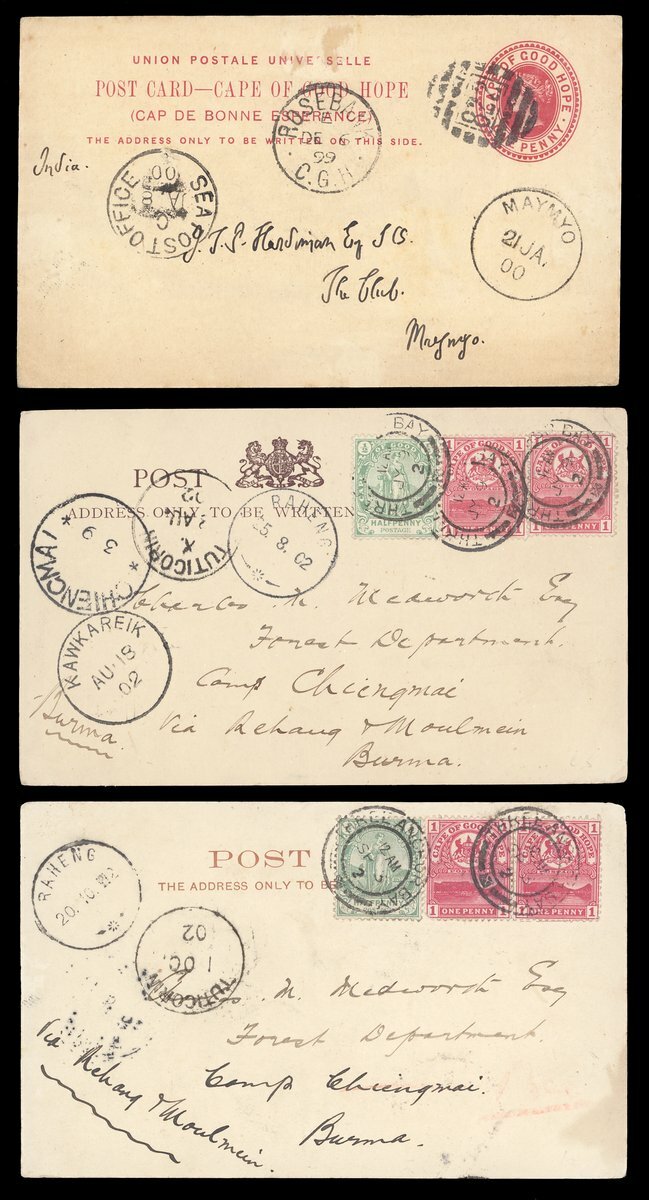 UNION POSTALE UNIVERSELLE
POST CARD—CAPE OF GOOD HOPE
(CAP DE BONNE ESPERANCE)
THE ADDRESS ONLY TO BE WRITTEN ON THIS SIDE.
CAPE OF GOOD HOPE.
PENNY
ROSEBANK
DE 6
99
C.G.H.
India.
SEA POST OFFICE
A
00
MAYMYO
21 JA.
00
J.T.P. Hardiman Esq
The Club.
Maymyo.
POST
ADDRESS ONLY TO BE WRITTEN
BAY
HALFPENNY
POSTAGE
1 CAPE OF GOOD 1
PENNY 1
TUTICORIN
AUG
02
RAHENG
25.8.02
CHIENGMAI
3 9
KAWKAREIK
AU·18
02
Charles M. Medworth Esq
Forest Department.
Camp Chiengmai
Via Rahang & Moulmein
Burma.
Burma.
POST
THE ADDRESS ONLY TO BE
THREE ANCHOR BAY
12 AM
1 CAPE OF GOOD HOPE 1
1 ONE PENNY 1
1 ONE PENNY 1
RAHENG
20.10.02
TUTICORIN
1 OC.
02
Charles M. Medworth Esq
Forest Department.
Camp Chiengmai.
Burma.
Via Rahang & Moulmein.